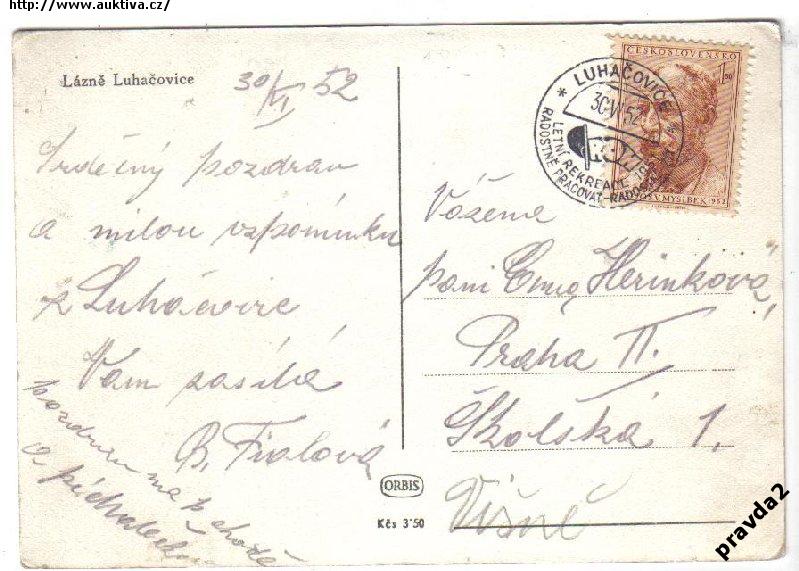 http://www.auktiva.cz/
Lázně Luhačovice
30/VI 52
Srdečný pozdrav
a milou vzpomínku
z Luhačovic
Vám zasílá
B. Fialová
pozdrav na p. chotě
a
ORBIS
Kčs 3'50
ČESKOSLOVENSKO
1,50
MYSLBEK 1952
* LUHAČOVICE
30.VI.52
LETNÍ REKREACE
RADOSTNĚ PRACOVAT-RADOSTNĚ
Vážená
paní Herinková,
Praha II.
Školská 1.
pravda2